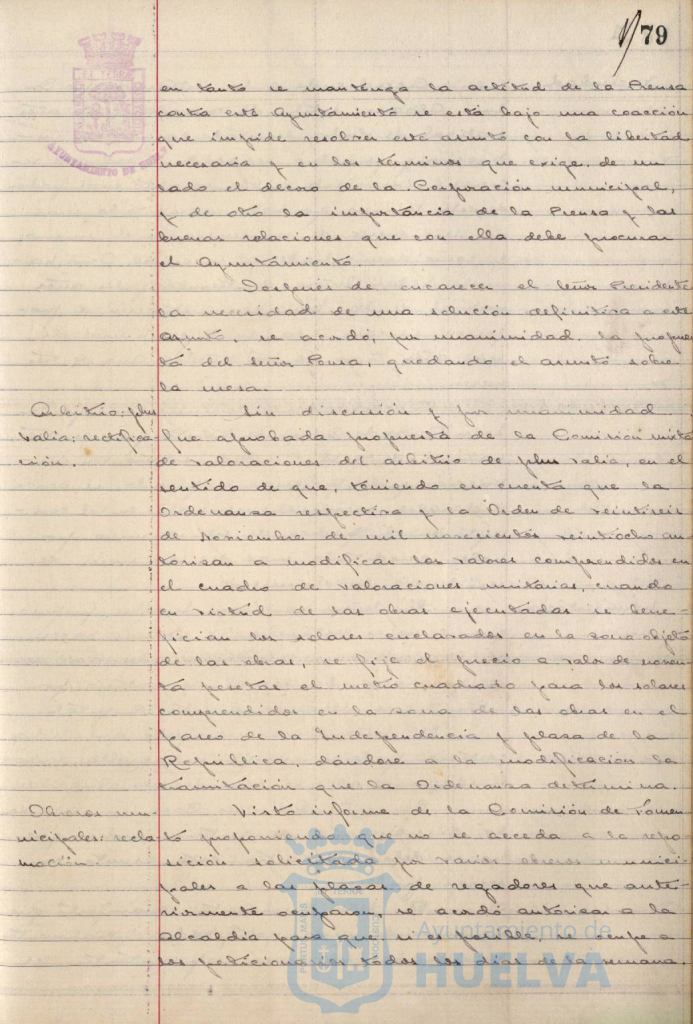 79
en tanto se mantenga la actitud de la Prensa
contra este Ayuntamiento se está bajo una coacción
que impide resolver este asunto con la libertad
necesaria y en los términos que exige, de un
lado el decoro de la Corporación municipal,
y de otro la importancia de la Prensa y las
buenas relaciones que con ella debe procurar
el Ayuntamiento.
Después de encarecer el Señor Presidente
la necesidad de una solución definitiva a este
asunto, se acordó, por unanimidad, la propues
ta del Señor Ponsa, quedando el asunto sobre
la mesa.
Arbitrio: plus
valía: rectifica-
ción.
Sin discusión y por unanimidad
fue aprobada propuesta de la Comisión mixta
de valoraciones del arbitrio de plus valía, en el
sentido de que, teniendo en cuenta que la
Ordenanza respectiva y la Orden de veintiseis
de noviembre de mil novecientos veintiocho au
torizan a modificar los valores comprendidos en
el cuadro de valoraciones unitarias, cuando
en virtud de las obras ejecutadas se bene-
fician los solares enclavados en la zona objeto
de las obras, se fije el precio a valor de noven-
ta pesetas el metro cuadrado para los solares
comprendidos en la zona de las obras en el
paseo de la Independencia y plaza de la
República, dándose a la modificación la
tramitación que la Ordenanza determina.
Obreros mu-
nicipales: recla-
mación.
Visto informe de la Comisión de Fomen-
to proponiendo que no se acceda a la repo-
sición solicitada por varios obreros munici-
pales a las plazas de regadores que ante-
riormente ocuparon, se acordó autorizar a la
Alcaldía para que, si es posible, se ocupe a
los peticionarios todos los días de la semana.
AYUNTAMIENTO DE
Ayuntamiento de
HUELVA